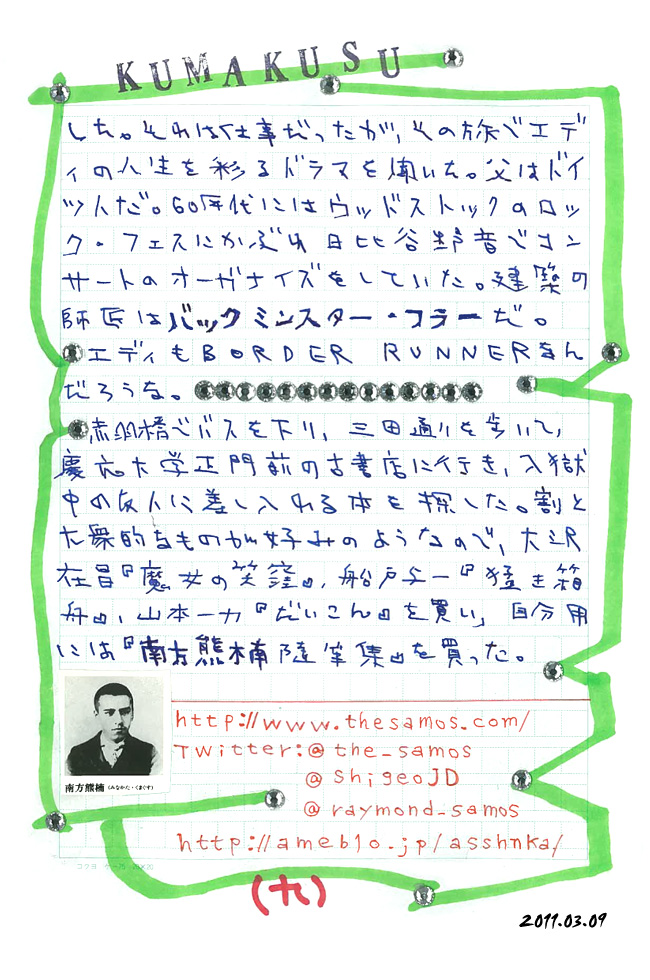 KUMAKUSU
した。それは仕事だったが、その旅でエデ
ィの人生を彩るドラマを聞いた。父はドイ
ツ人だ。60年代にはウッドストックのロッ
ク・フェスにかぶれ日比谷野音でコン
サートのオーガナイズをしていた。建築の
師匠はバックミンスター・フラーだ。
エディもBORDER RUNNERなん
だろうな。
赤羽橋でバスを下り、三田通りを歩いて、
慶応大学正門前の古書店に行き、入獄
中の友人に差し入れる本を探した。割と
大衆的なものが好みのようなので、大沢
在昌『魔女の笑窪』、船戸与一『猛き箱
舟』、山本一力『だいこん』を買い、自分用
には『南方熊楠随筆集』を買った。
南方熊楠(みなかた・くまぐす)
http://www.thesamos.com/
Twitter:@the_samos
@ShigeoJD
@raymond_samos
http://ameblo.jp/asshnka/
コクヨ ケー75 20×20
(九)
2011.03.09